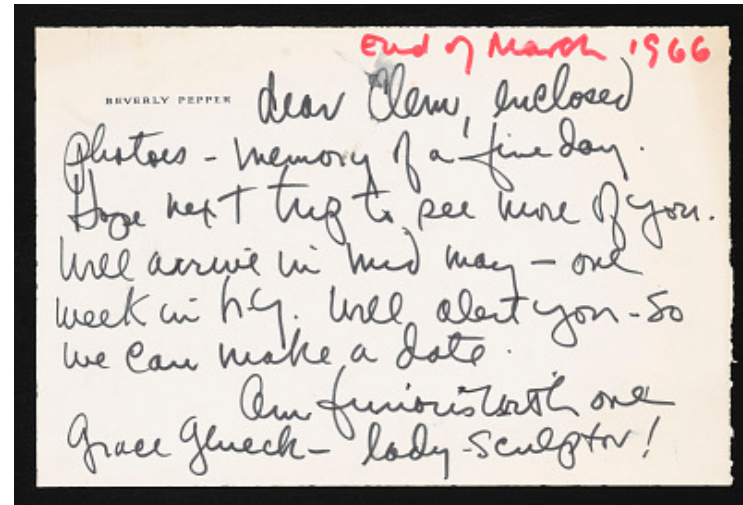 End of March 1966
BEVERLY PEPPER
dear Clem, enclosed
photoes - memory of a fine day.
Hope next trip to see more of you.
Will arrive in mid may - one
week in NY. Will alert you - so
we can make a date.
Am furious with one
Grace Glueck - lady-sculptor!